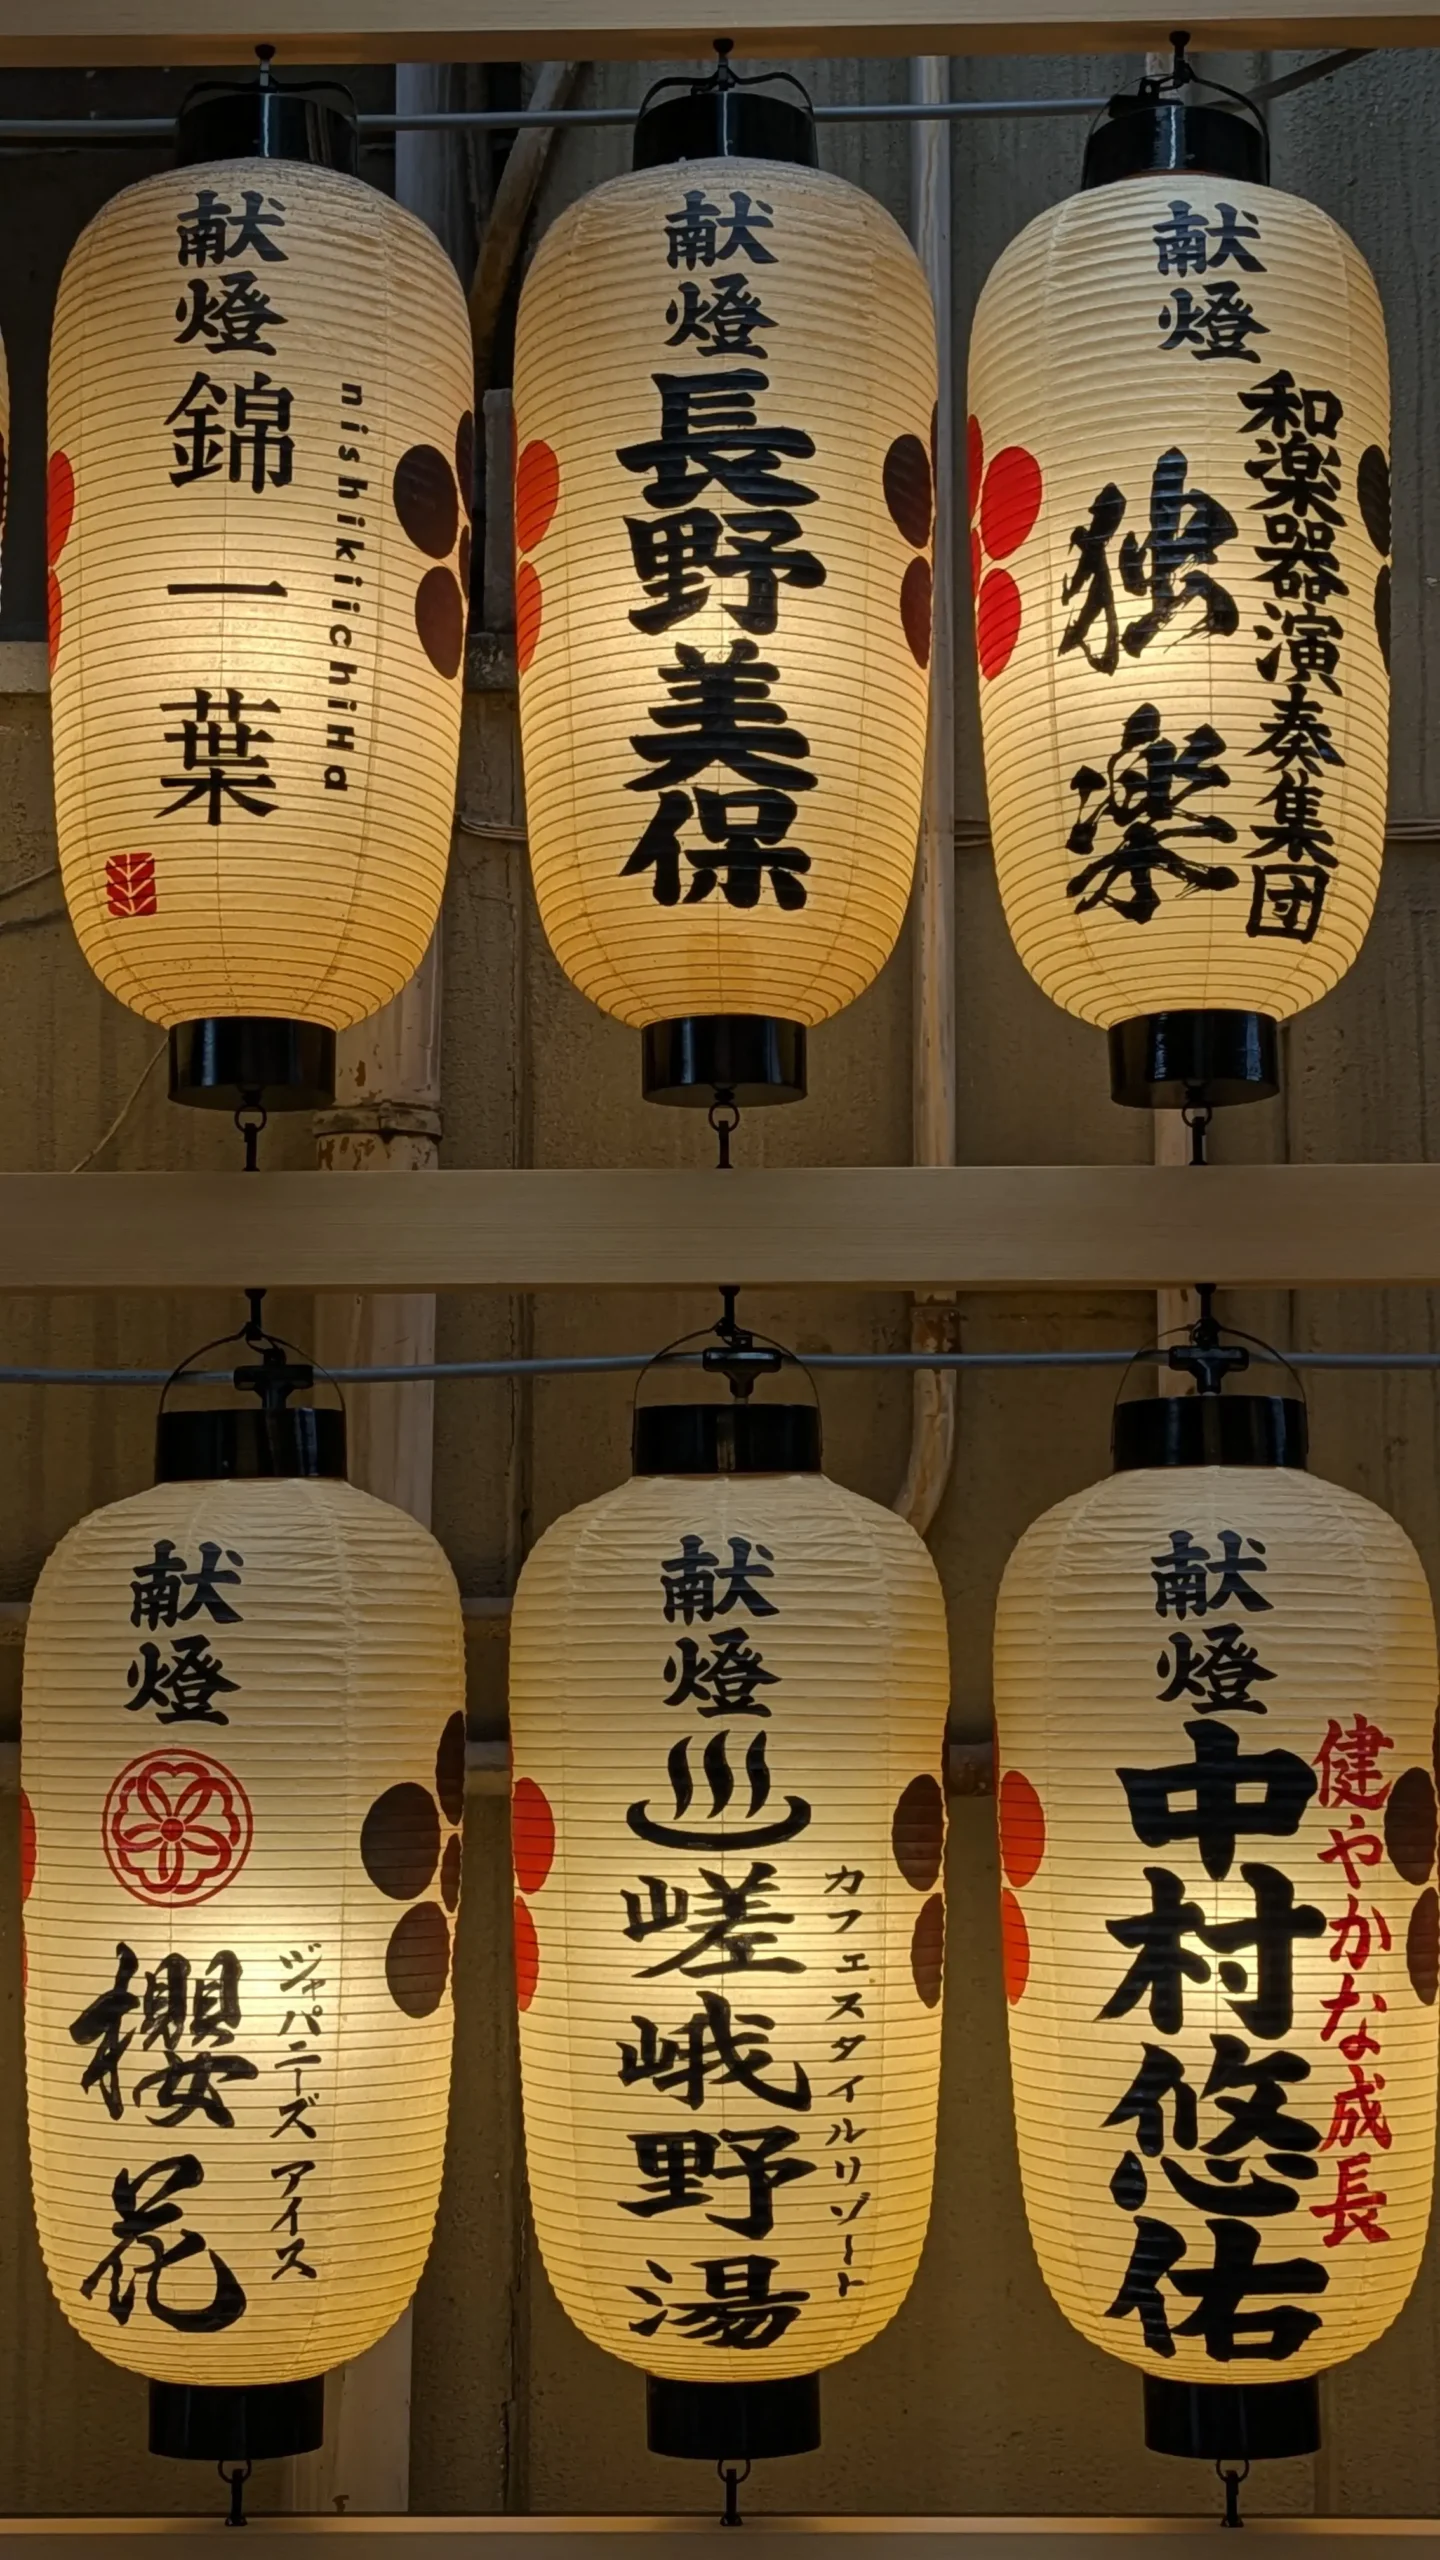 献燈
錦一葉
nishikiichiHa
献燈
長野美保
献燈
和楽器演奏集団
独楽
献燈
ジャパニーズ アイス
櫻花
献燈
嵯峨野湯
カフェスタイルリゾート
献燈
健やかな成長
中村悠佑